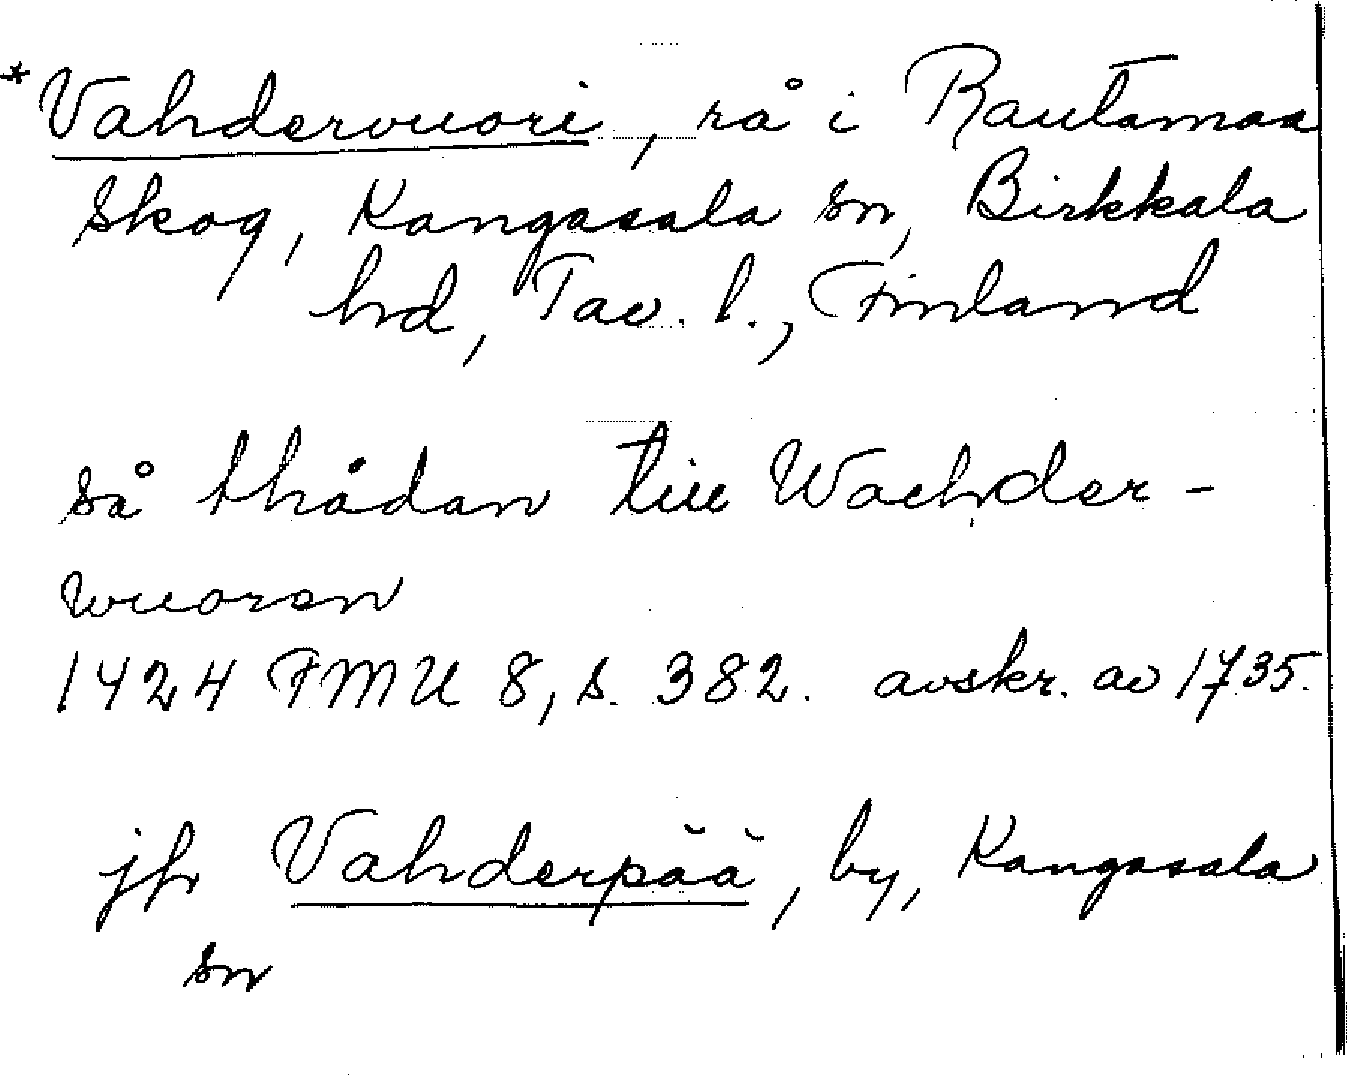 *Vahdervuori, rå i Rautamaa
skog, Kangasala sn, Birkkala
hd, Tav. l., Finland
så thådan till Wachder-
wuoren
1424 FMU 8, s. 382. avskr. av 1735.
jfr Vahderpää, by, Kangasala
sn